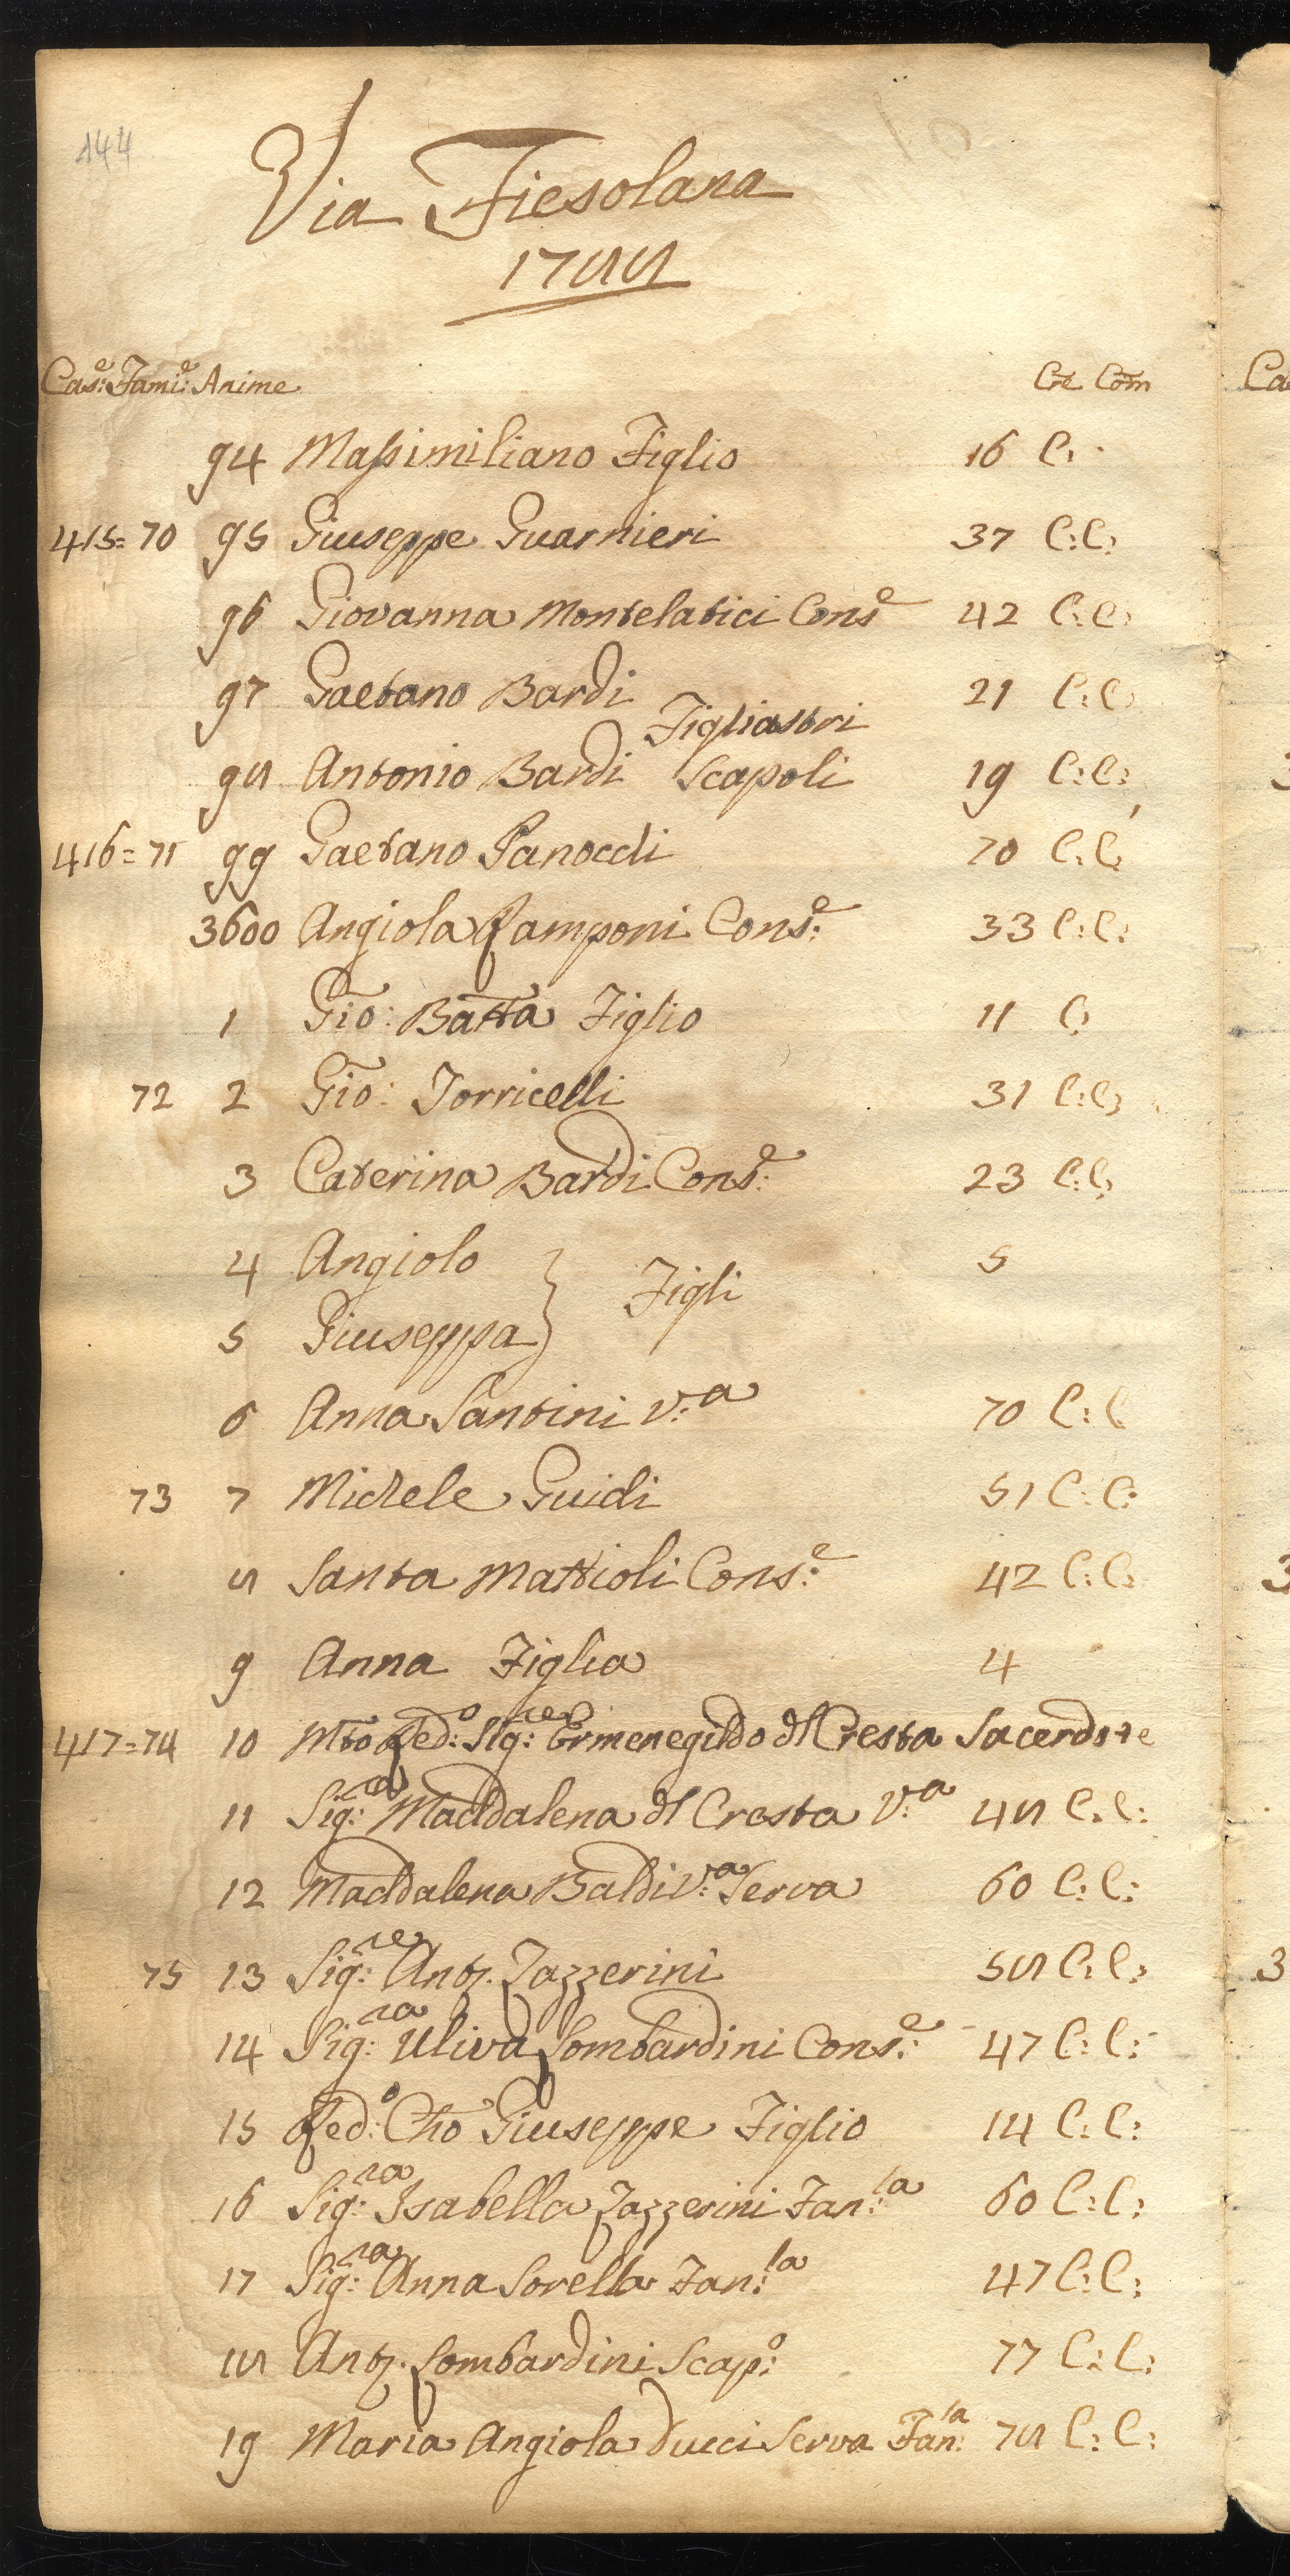 144
Via Fiesolana
1788
Cas.e: Fami.e: Anime Cre Com
94 Massimiliano Figlio 16 C:
415= 70 95 Giuseppe Guarnieri 37 C: C:
96 Giovanna Montelatici Cons.e 42 C: C:
97 Gaetano Bardi 21 C: C:
Figliastri
98 Antonio Bardi Scapoli 19 C: C:
416= 71 99 Gaetano Panocchi 70 C: C:
3600 Angiola Ramponi Cons.e: 33 C: C:
1 Gio: Batta Figlio 11 C:
72 2 Gio: Torricelli 31 C: C:
3 Caterina Bardi Cons.e: 23 C: C:
4 Angiolo 5
Figli
5 Giuseppa
6 Anna Santini V.a 70 C: C
73 7 Michele Guidi 51 C: C:
8 Santa Mattioli Cons.e: 42 C: C:
9 Anna Figlia 4
417= 74 10 Mto Red:o Sig:re Ermenegildo dl Cresta Sacerdote
11 Sig:ra Maddalena dl Cresta V.a 48 C: C:
12 Maddalena Baldi V.a Serva 60 C: C:
75 13 Sig:re Anto. Tazzerini 58 C: C:
14 Sig:ra Uliva Lombardini Cons.e: 47 C: C:
15 Red:o Cho Giuseppe Figlio 14 C: C:
16 Sig:ra Isabella Tazzerini Fan:la 60 C: C:
17 Sig:ra Anna Sorella Fan:la 47 C: C:
18 Anto. Lombardini Scap:o 77 C: C:
19 Maria Angiola Ducci Serva Fan:la 78 C: C: